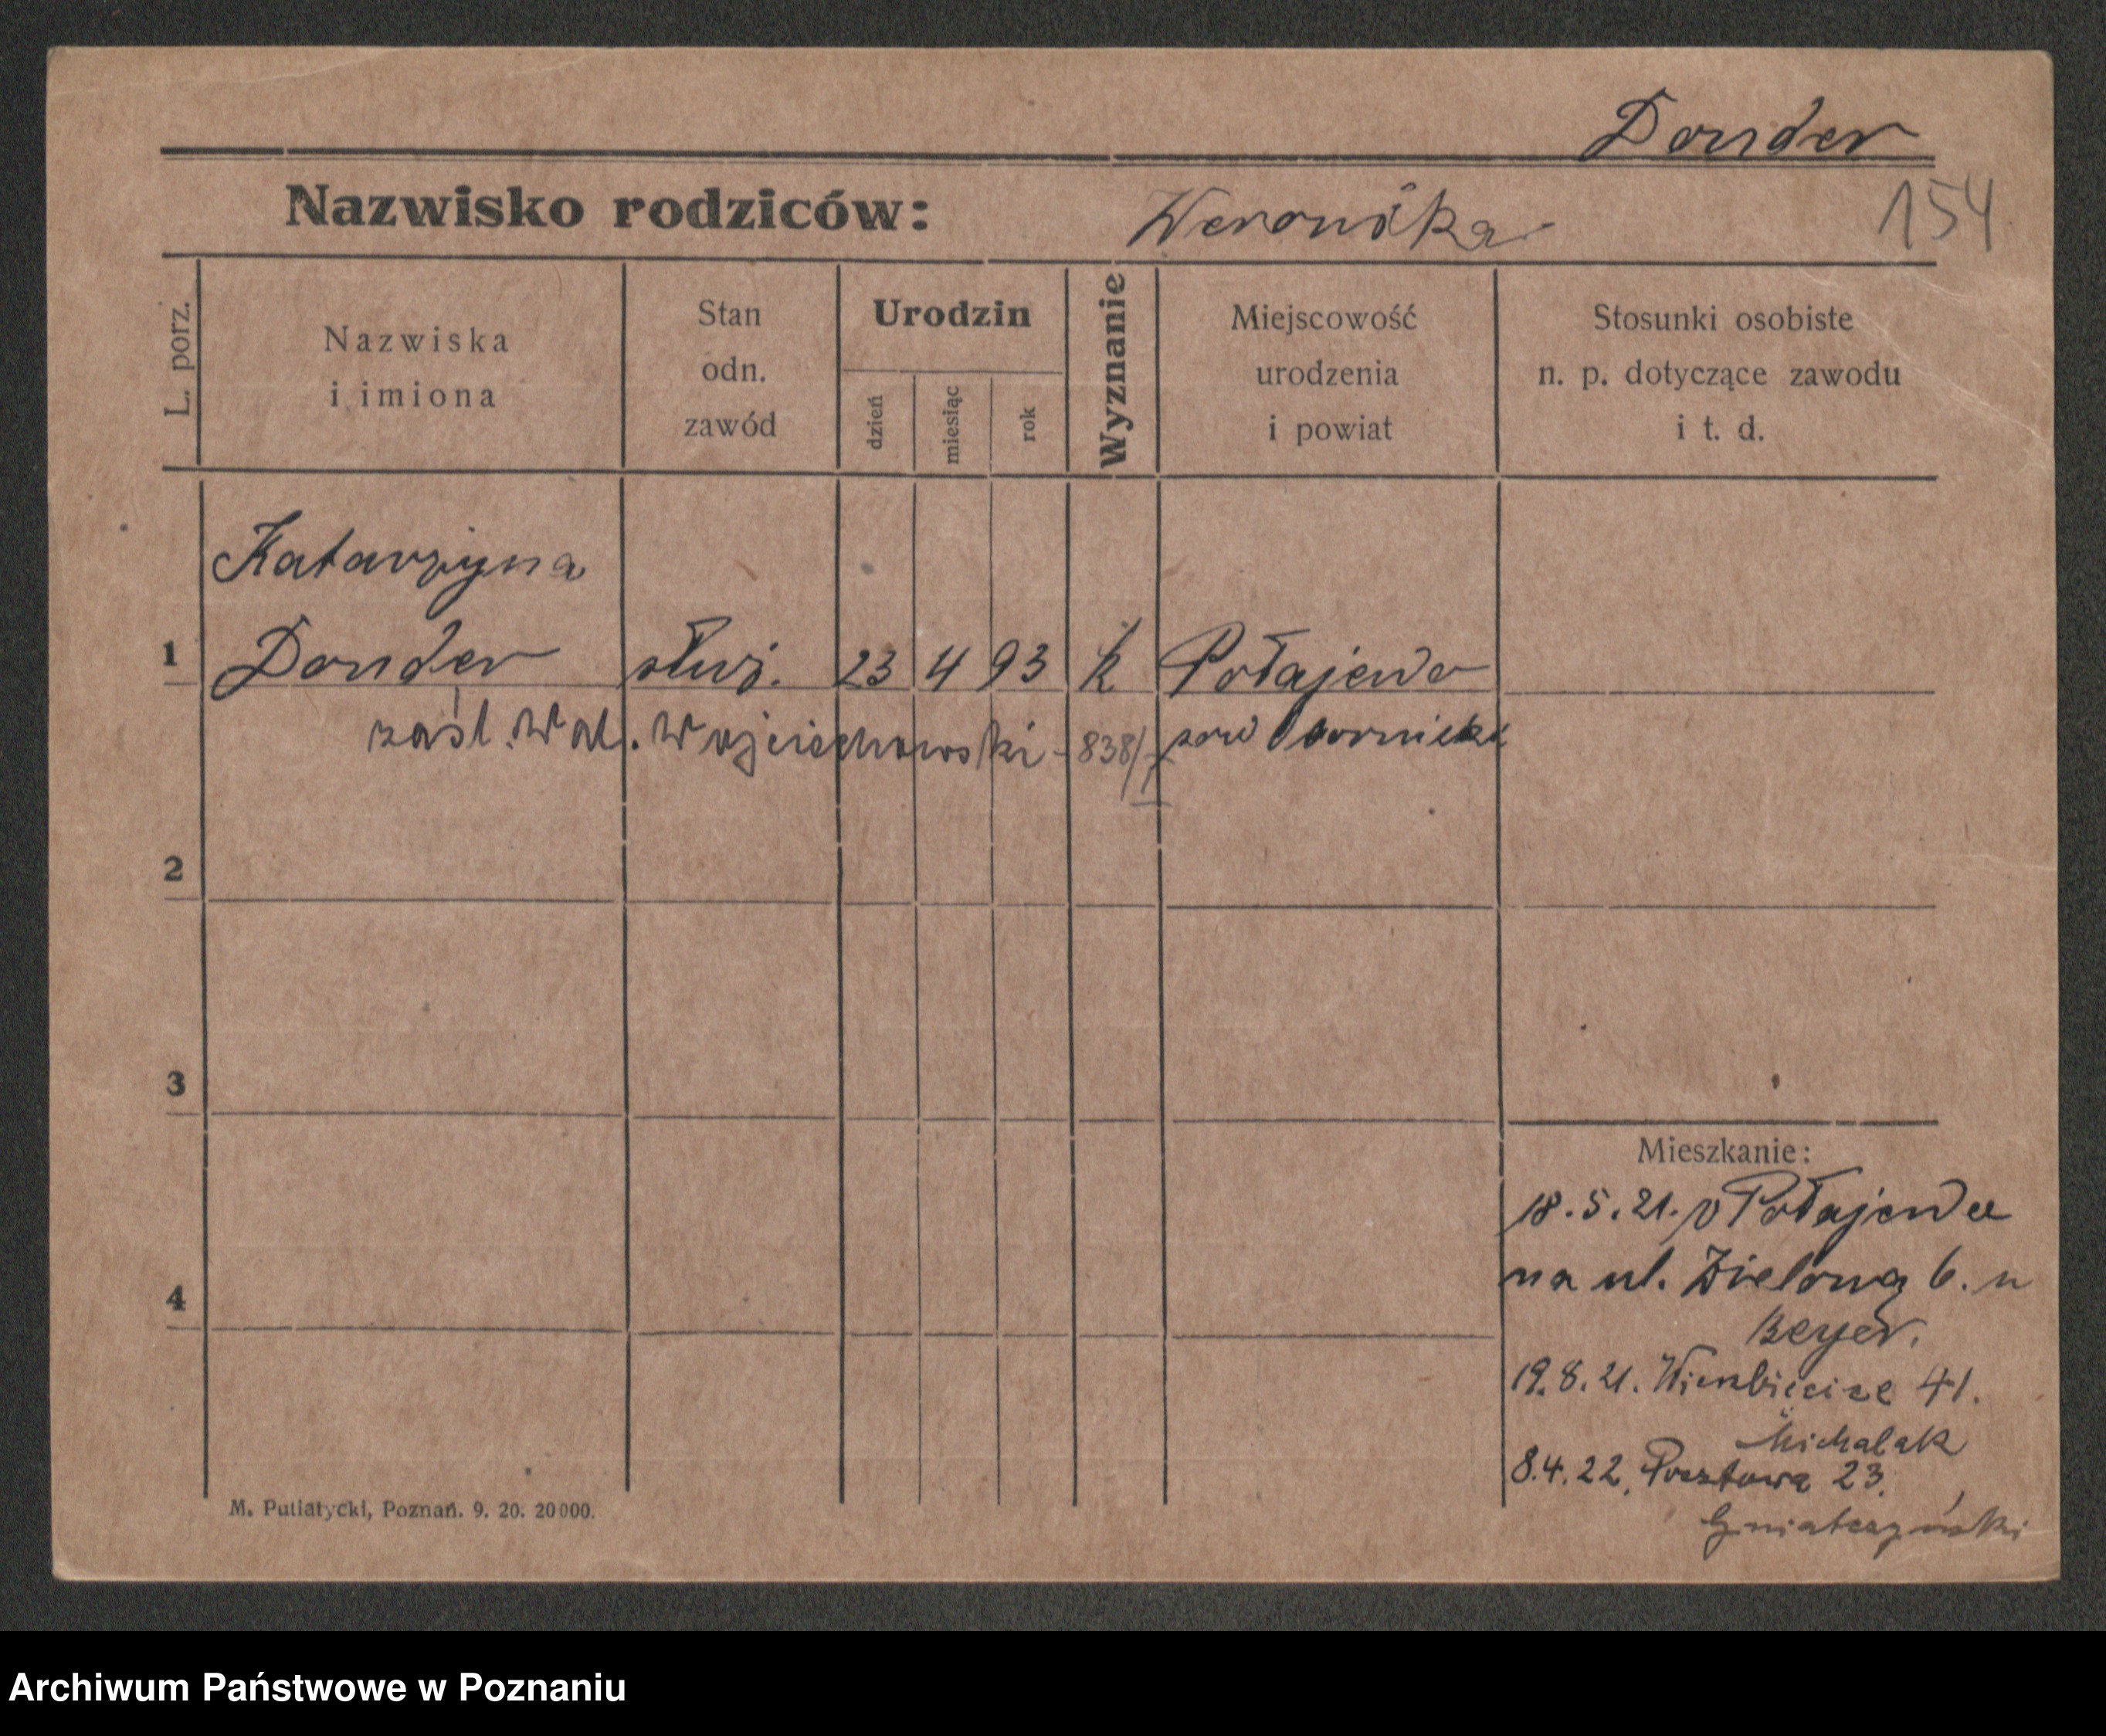 Donder
Nazwisko rodziców: Weronika 154
L. porz.
Nazwiska
i imiona
Stan
odn.
zawód
Urodzin
dzień
miesiąc
rok
Wyznanie
Miejscowość
urodzenia
i powiat
Stosunki osobiste
n. p. dotyczące zawodu
i t. d.
Katarzyna
1 Donder służ. 23 4 93 k Połajewo
zaśl. Wal. Wojciechowski - 838/I pow Obornicki
2
3
4
Mieszkanie:
18.5.21. Połajewa
na ul. Zieloną 6. u
Beyer.
19.8.21. Wierzbięcice 41.
Michalak
8.4.22. Pocztowa 23.
Gniatczyński
M. Putiatycki, Poznań. 9. 20. 20000.
Archiwum Państwowe w Poznaniu